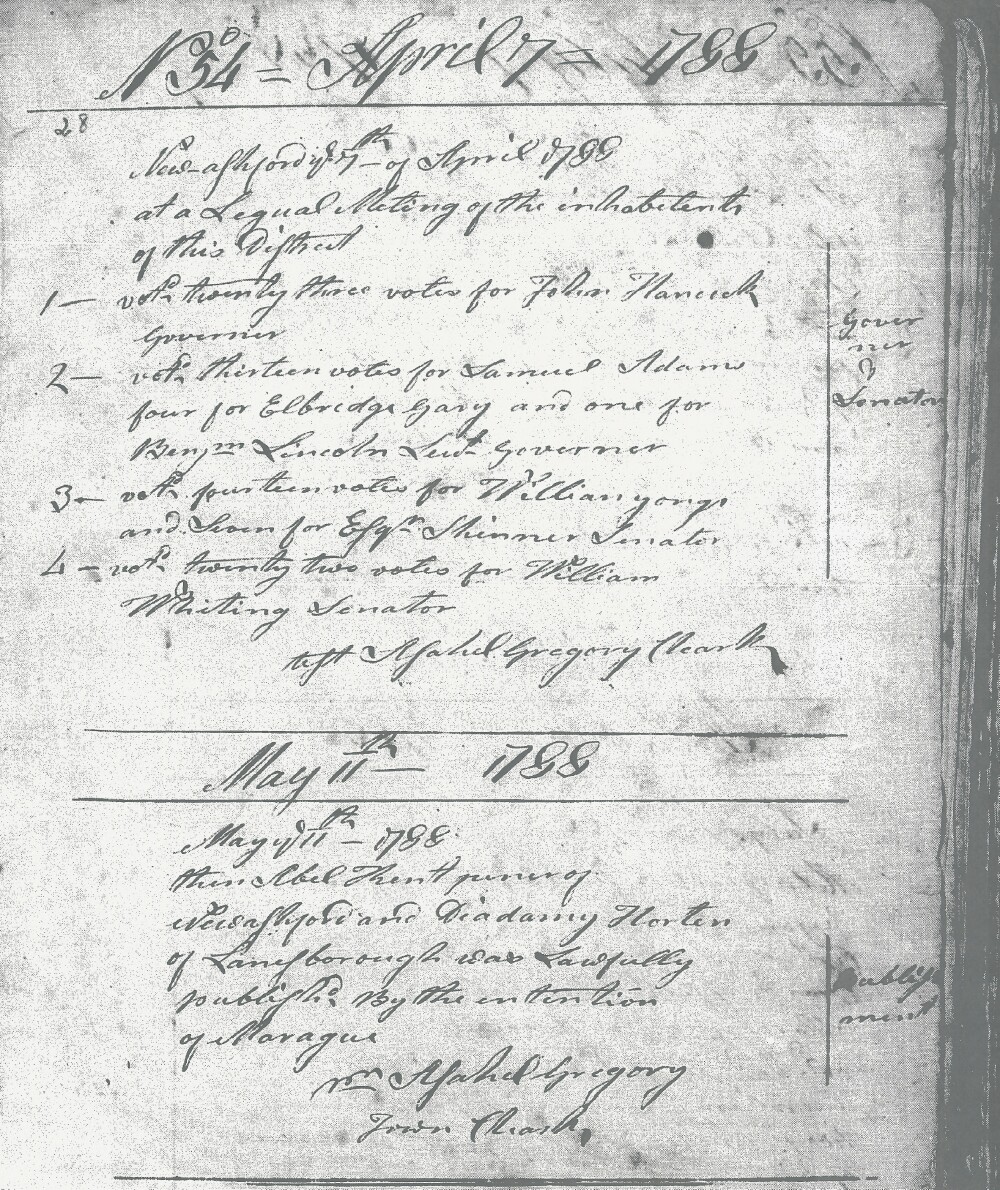 No 54 = April 7 = 1788
28
New-ashford ye 7th of April 1788
at a Legual Meting of the inhabetents
of this District
1 — votd twenty three votes for John Hancock
Governer
2 — votd thirteen votes for Samuel Adams
four for Elbridge Gary and one for
Benjm Lincoln Leut Governer
3 — votd fourteen votes for William yongs
and Seven for Esqr Skinner Senator
4 — votd twenty two votes for William
Whiting Senator
Gover
ner
&
Senator
test Asahel Gregory Cleark
May 11th — 1788
May ye 11th — 1788
then Abel Kent juner of
Newashford and Diadamy Horten
of Lanesborough was Lawfully
publishd By the entention
of Marague
Publish
ment
pr Asahel Gregory
Town Cleark